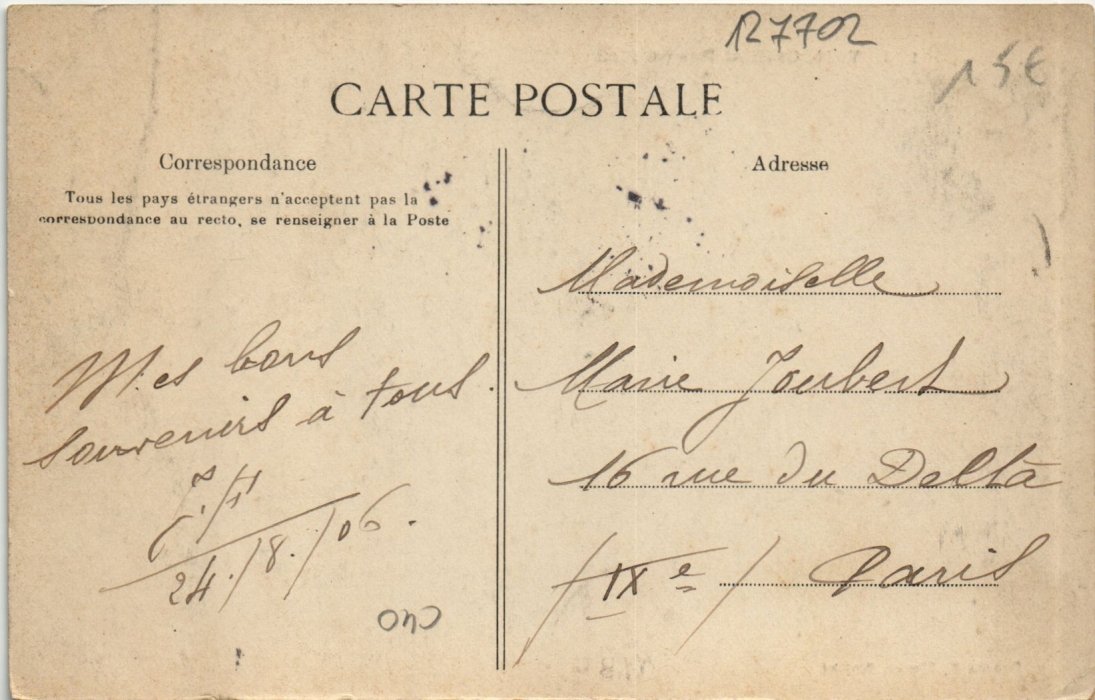 127702
15€
CARTE POSTALE
Correspondance
Tous les pays étrangers n'acceptent pas la
correspondance au recto, se renseigner à la Poste
Mes bons
souvenirs à tous.
24/8/06.
Adresse
Mademoiselle
Marie Joubert
16 rue du Delta
(IXe) Paris